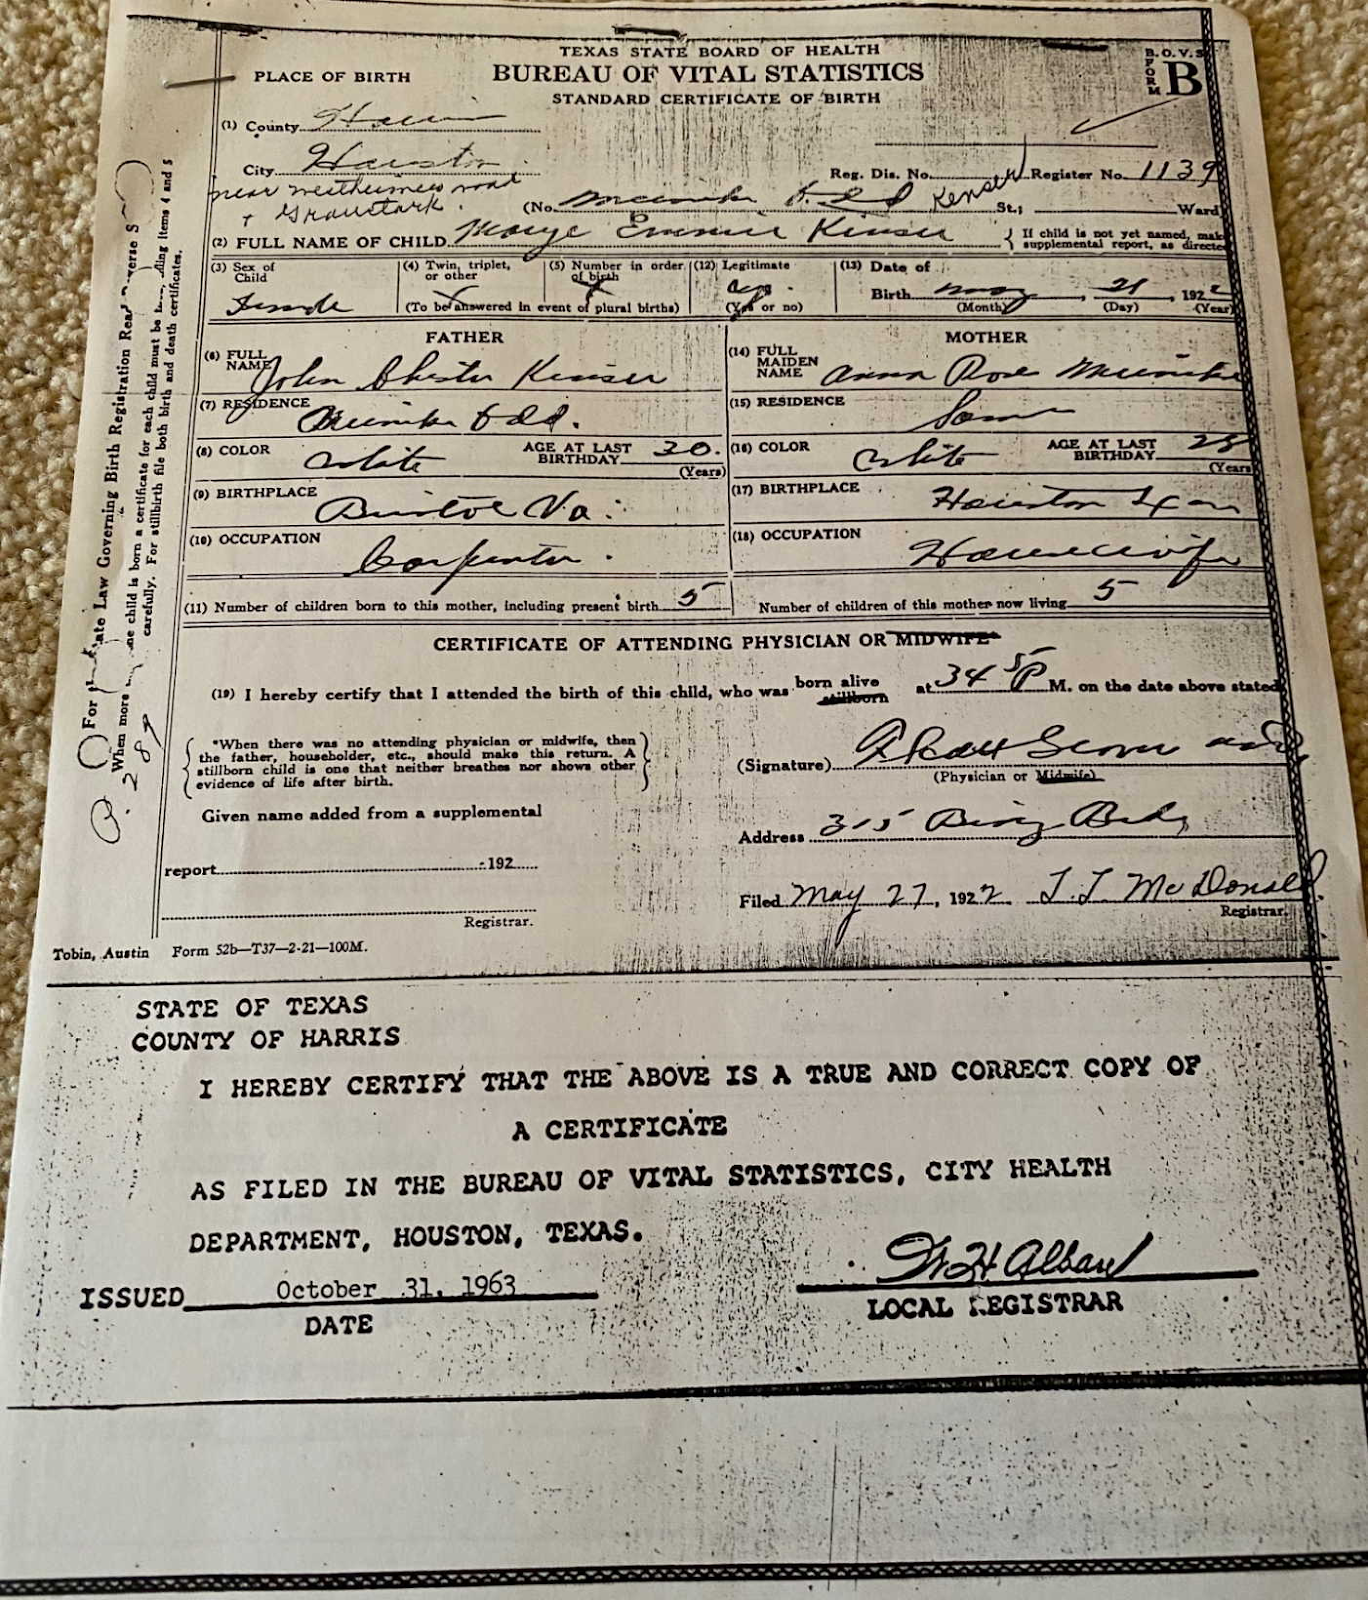 TEXAS STATE BOARD OF HEALTH
BUREAU OF VITAL STATISTICS
STANDARD CERTIFICATE OF BIRTH
B. O. V. S.
FORM B
PLACE OF BIRTH
(1) County Harris
City Houston
Reg. Dis. No. Register No. 1139
near road
+ Graustark.
(No. Kenser St.; Ward
(2) FULL NAME OF CHILD Kinser
{ If child is not yet named, mak
supplemental report, as directe
(3) Sex of Child
Female
(4) Twin, triplet, or other
(5) Number in order of birth
(To be answered in event of plural births)
(12) Legitimate
yes
(Yes or no)
(13) Date of
Birth May, 21, 1922
(Month) (Day) (Year)
FATHER
(6) FULL NAME John Chester Kinser
(7) RESIDENCE
(8) COLOR White AGE AT LAST BIRTHDAY 30. (Years)
(9) BIRTHPLACE Bristol Va.
(10) OCCUPATION Carpenter.
(11) Number of children born to this mother, including present birth 5
MOTHER
(14) FULL MAIDEN NAME Anna Rose
(15) RESIDENCE Same
(16) COLOR White AGE AT LAST BIRTHDAY 25 (Years
(17) BIRTHPLACE Houston Texas
(18) OCCUPATION Housewife
Number of children of this mother now living 5
CERTIFICATE OF ATTENDING PHYSICIAN OR MIDWIFE*
(19) I hereby certify that I attended the birth of this child, who was born alive stillborn at 345 P M. on the date above stated
{ *When there was no attending physician or midwife, then
the father, householder, etc., should make this return. A
stillborn child is one that neither breathes nor shows other
evidence of life after birth. }
(Signature)
(Physician or Midwife)
Given name added from a supplemental
Address 315
report 192
Filed May 27, 1922 McDonald
Registrar.
Registrar.
Tobin, Austin Form 52b—T37—2-21—100M.
STATE OF TEXAS
COUNTY OF HARRIS
I HEREBY CERTIFY THAT THE ABOVE IS A TRUE AND CORRECT COPY OF
A CERTIFICATE
AS FILED IN THE BUREAU OF VITAL STATISTICS, CITY HEALTH
DEPARTMENT, HOUSTON, TEXAS.
ISSUED October 31, 1963
DATE
LOCAL REGISTRAR
ate Law Governing Birth Registration Read verse S
When more ne child is born a certificate for each child must be ding items 4 and 5
carefully. For stillbirth file both birth and death certificates.